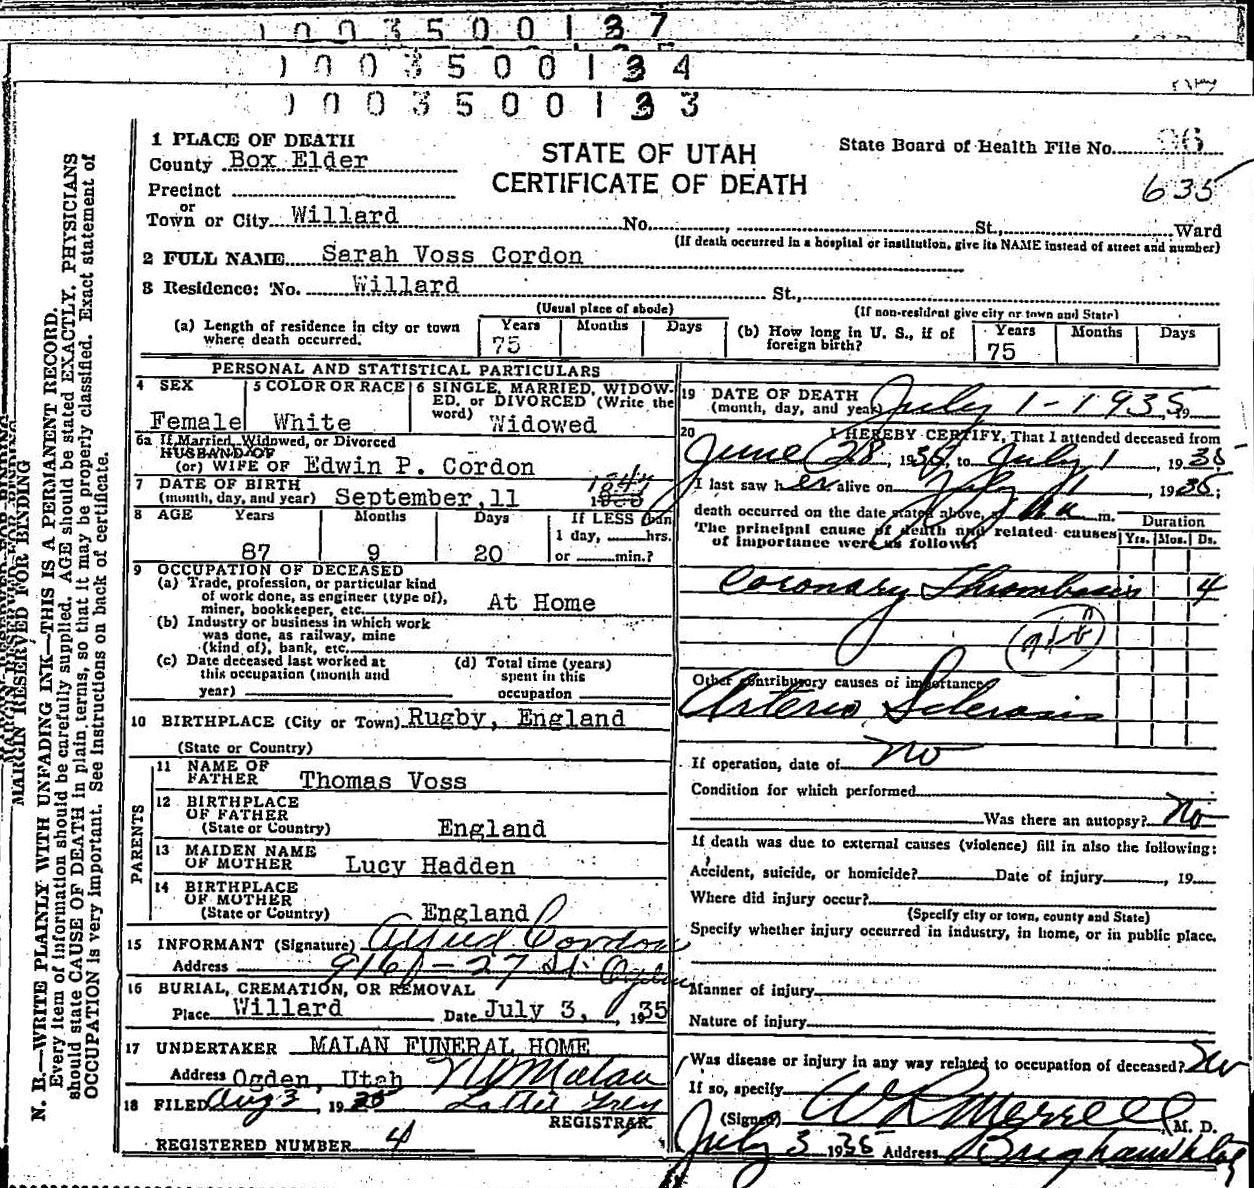 1003500137
1003500134
1003500133
MARGIN RESERVED FOR BINDING
N. B.—WRITE PLAINLY WITH UNFADING INK—THIS IS A PERMANENT RECORD.
Every item of information should be carefully supplied. AGE should be stated EXACTLY. PHYSICIANS
should state CAUSE OF DEATH in plain terms, so that it may be properly classified. Exact statement of
OCCUPATION is very important. See Instructions on back of certificate.
1 PLACE OF DEATH
County Box Elder
Precinct
or
Town or City Willard No. St., Ward
STATE OF UTAH
CERTIFICATE OF DEATH
State Board of Health File No. 96
635
(If death occurred in a hospital or institution, give its NAME instead of street and number)
2 FULL NAME Sarah Voss Cordon
3 Residence: No. Willard St.,
(Usual place of abode) (If non-resident give city or town and State)
(a) Length of residence in city or town where death occurred. Years 75 Months Days
(b) How long in U. S., if of foreign birth? Years 75 Months Days
PERSONAL AND STATISTICAL PARTICULARS
4 SEX Female
5 COLOR OR RACE White
6 SINGLE, MARRIED, WIDOWED, or DIVORCED (Write the word) Widowed
6a If Married, Widowed, or Divorced
HUSBAND OF
(or) WIFE OF Edwin P. Cordon
7 DATE OF BIRTH
(month, day, and year) September, 11 1847
8 AGE Years 87 Months 9 Days 20
If LESS than
1 day, hrs.
or min.?
9 OCCUPATION OF DECEASED
(a) Trade, profession, or particular kind
of work done, as engineer (type of),
miner, bookkeeper, etc. At Home
(b) Industry or business in which work
was done, as railway, mine
(kind of), bank, etc.
(c) Date deceased last worked at
this occupation (month and
year)
(d) Total time (years)
spent in this
occupation
10 BIRTHPLACE (City or Town) Rugby, England
(State or Country)
PARENTS
11 NAME OF
FATHER Thomas Voss
12 BIRTHPLACE
OF FATHER
(State or Country) England
13 MAIDEN NAME
OF MOTHER Lucy Hadden
14 BIRTHPLACE
OF MOTHER
(State or Country) England
15 INFORMANT (Signature) Alfred Cordon
Address 916 - 27 St. Ogden
16 BURIAL, CREMATION, OR REMOVAL
Place Willard Date July 3, 1935
17 UNDERTAKER MALAN FUNERAL HOME
Address Ogden, Utah Malan
18 FILED Aug 3, 1935
REGISTRAR
REGISTERED NUMBER 4
19 DATE OF DEATH
(month, day, and year) July 1-1935, 19
20 I HEREBY CERTIFY, That I attended deceased from
June 28, 1935, to July 1, 1935;
I last saw her alive on July 1, 1935;
death occurred on the date stated above, m.
The principal cause of death and related causes
of importance were as follows:
Duration
Yrs. Mos. Ds.
Coronary Thrombosis 4
Other contributory causes of importance
Arterio Sclerosis
If operation, date of no
Condition for which performed
Was there an autopsy? No
If death was due to external causes (violence) fill in also the following:
Accident, suicide, or homicide? Date of injury, 19
Where did injury occur?
(Specify city or town, county and State)
Specify whether injury occurred in industry, in home, or in public place.
Manner of injury
Nature of injury
Was disease or injury in any way related to occupation of deceased? No
If so, specify
(Signed) W R Merrell, M. D.
July 3 1935 Address Brigham Utah